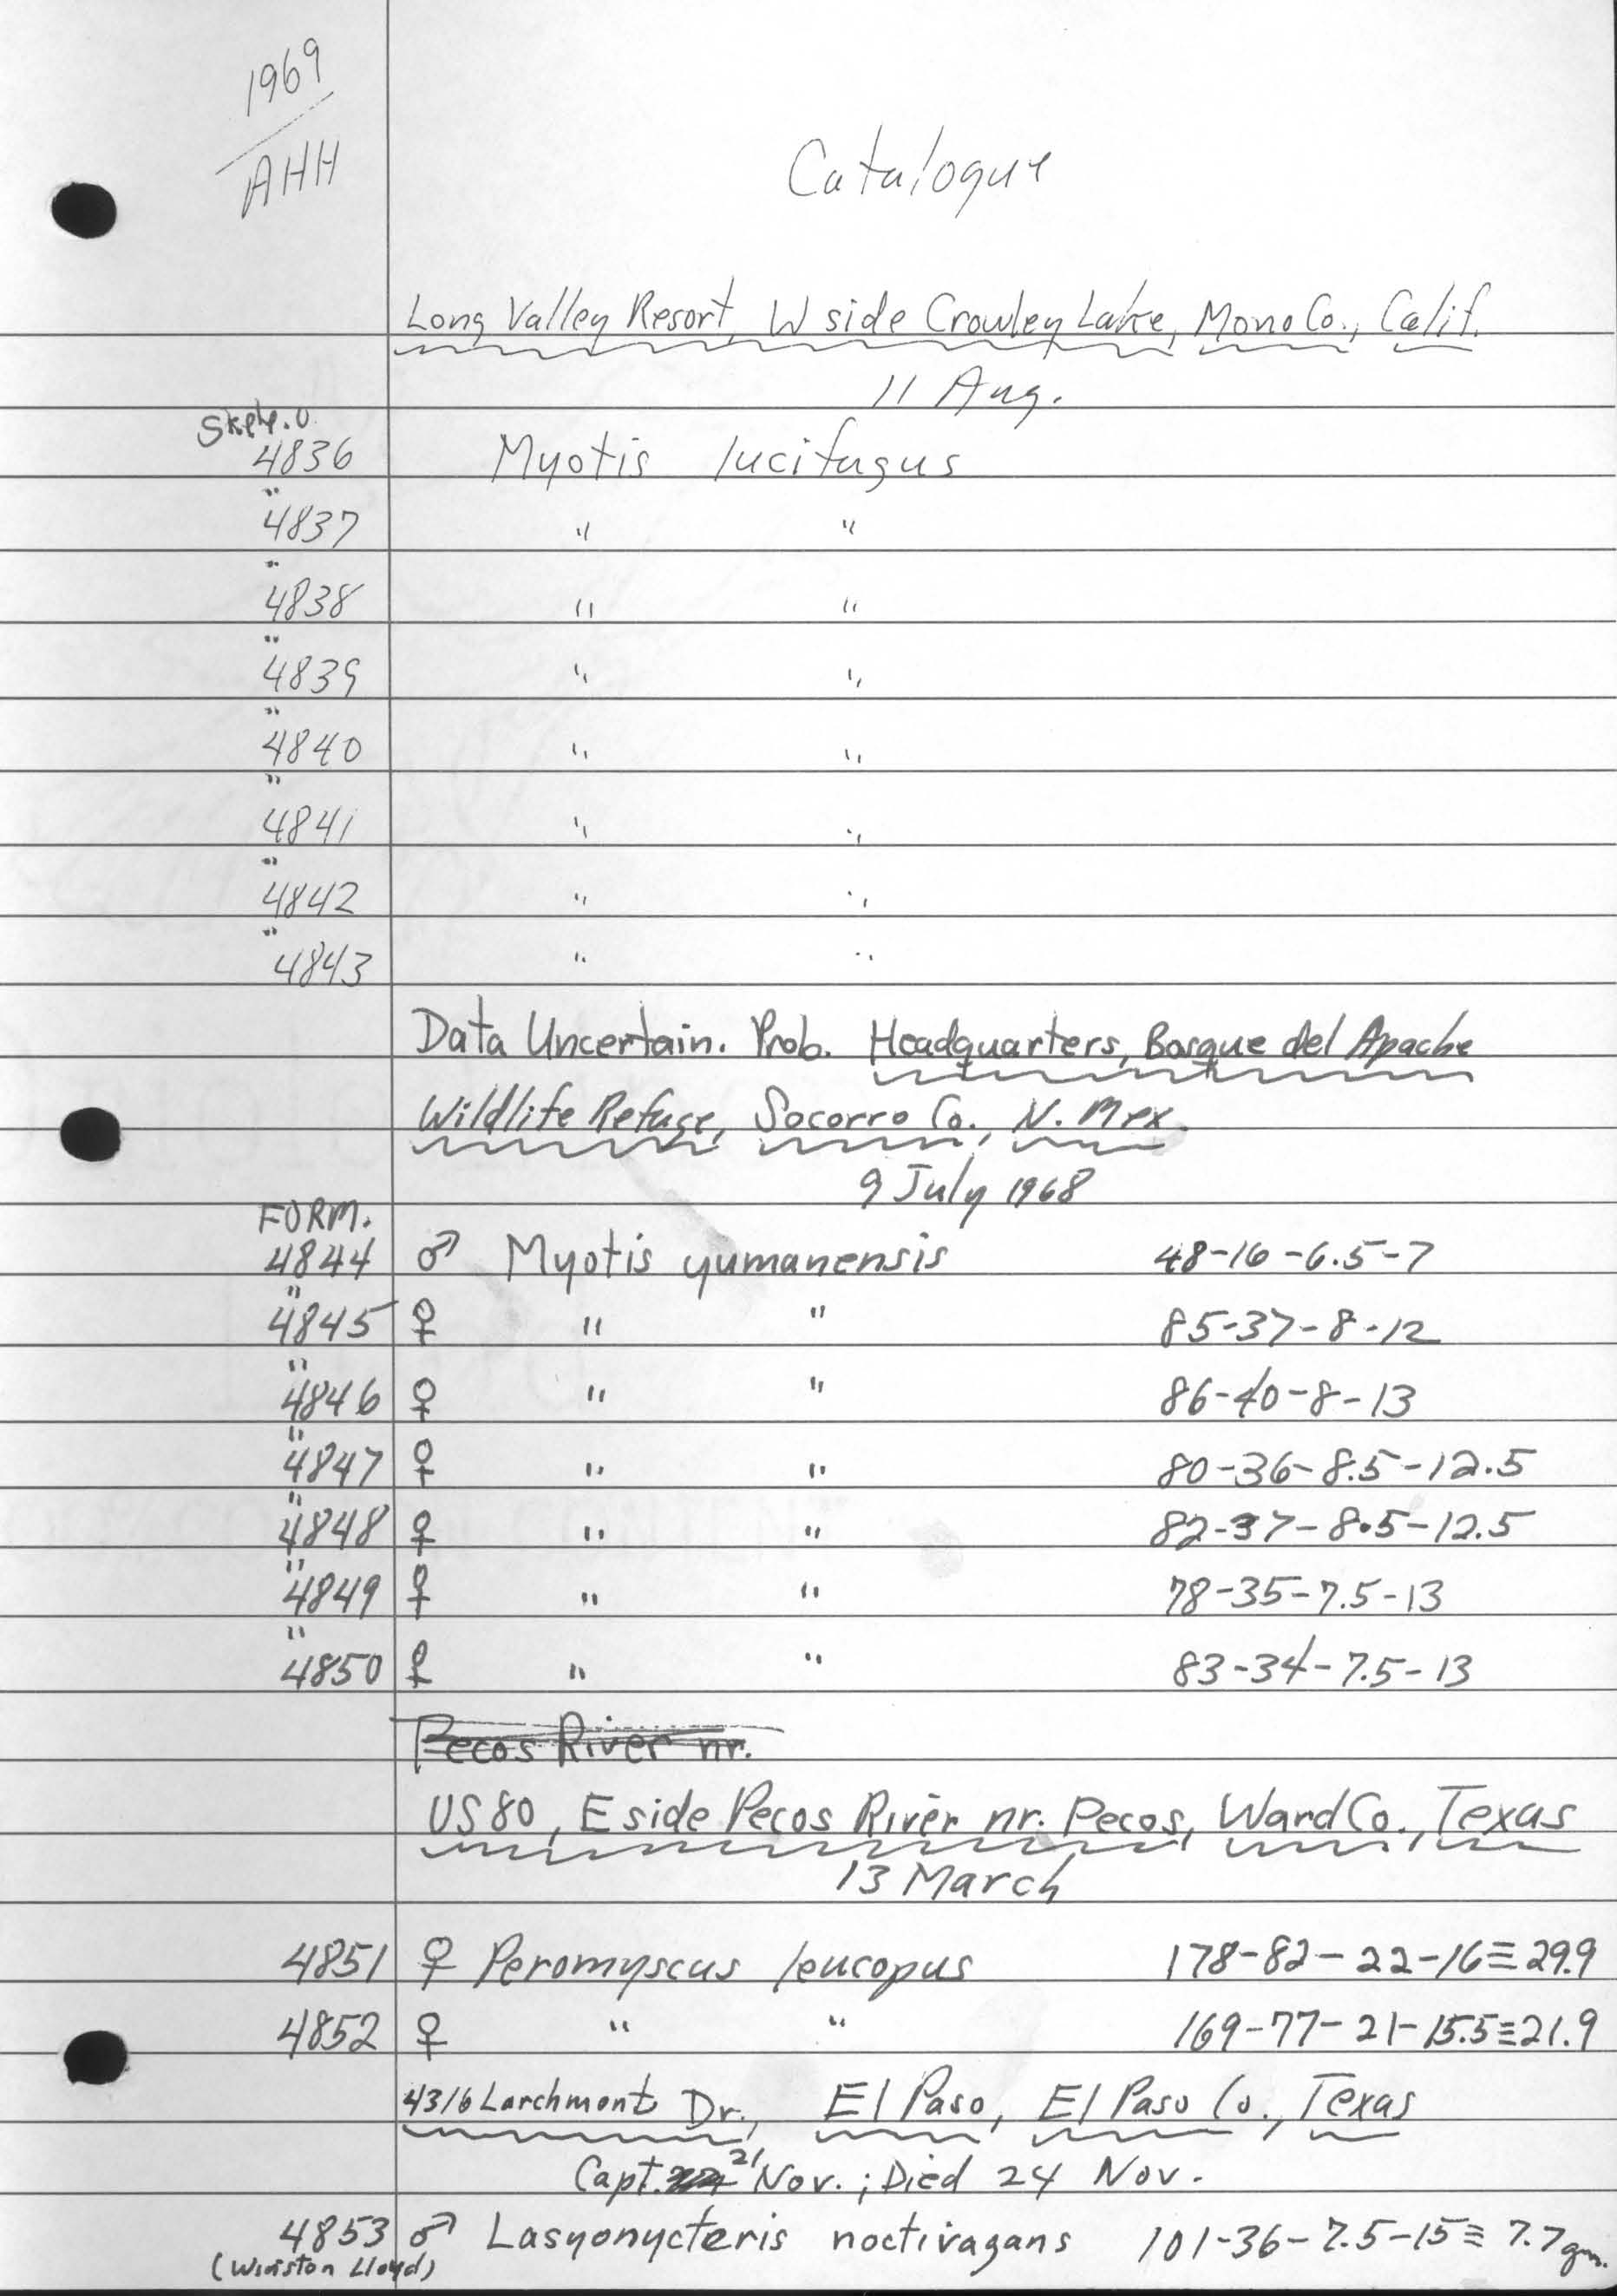 1969
AHH
Catalogue
Long Valley Resort, W side Crowley Lake, Mono Co., Calif.
11 Aug.
4836 Myotis lucifugus
" 4837 " "
" 4838 " "
" 4839 " "
" 4840 " "
" 4841 " "
" 4842 " "
" 4843 " "
Data Uncertain. Prob. Headquarters, Bosque del Apache
Wildlife Refuge, Socorro Co., N. Mex.
9 July 1968
FORM.
4844 ♂ Myotis yumanensis 48-16-6.5-7
" 4845 ♀ " " 85-37-8-12
" 4846 ♀ " " 86-40-8-13
" 4847 ♀ " " 80-36-8.5-12.5
" 4848 ♀ " " 82-37-8.5-12.5
" 4849 ♀ " " 78-35-7.5-13
" 4850 ♀ " " 83-34-7.5-13
Pecos River nr.
US 80, E side Pecos River nr. Pecos, Ward Co., Texas
13 March
4851 ♀ Peromyscus leucopus 178-82-22-16≡29.9
4852 ♀ " " 169-77-21-15.5≡21.9
4316 Larchmont Dr., El Paso, El Paso Co., Texas
Capt. 21 Nov.; Died 24 Nov.
4853 ♂ Lasyonycteris noctivagans 101-36-7.5-15≡7.7 gm.
(Winston Lloyd)